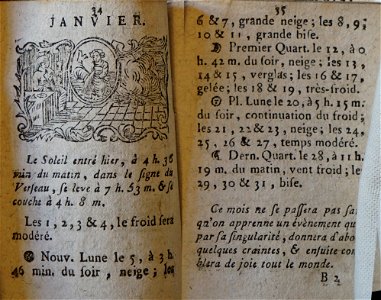 34
JANVIER.
Le Soleil entré hier, à 4 h. 36
min du matin, dans le signe du
Verseau, se leve à 7 h. 53 m. & se
couche à 4 h. 8 m.
Les 1, 2, 3 & 4, le froid sera
modéré.
Nouv. Lune le 5, à 3 h.
46 min. du soir, neige; les
35
6 & 7, grande neige; les 8, 9;
10 & 11, grande bise.
Premier Quart. le 12, à 0
h. 42 m. du soir, neige; les 13,
14 & 15, verglas; les 16 & 17,
gelée; les 18 & 19, très-froid.
Pl. Lune le 20, à 5 h. 15 m.
du soir, continution du froid;
les 21, 22 & 23, neige; les 24,
25, 26 & 27, temps modéré.
Dern. Quart. le 28, à 11 h.
19 m. du matin, vent froid; le
29, 30 & 31, bise.
Ce mois ne se passera pas san
qu'on apprenne un évènement qu
par sa singularité, donnera d'abo
quelques craintes, & ensuite co
blera de joie tout le monde.
B 2